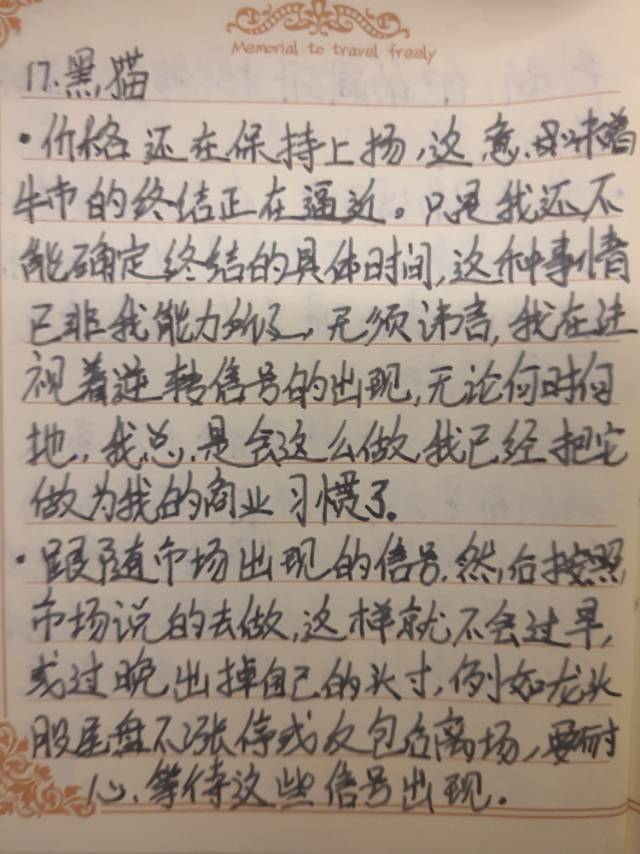 Memorial to travel freely
17.黑猫
·价格还在保持上扬,这意味着
牛市的终结正在逼近。只是我还不
能确定终结的具体时间,这种事情
已非我能力所及,无须讳言,我在注
视着逆转信号的出现,无论何时何
地,我总是会这么做,我已经把它
做为我的商业习惯了。
·跟随市场出现的信号,然后按照
市场说的去做,这样就不会过早,
或过晚出掉自己的头寸,例如龙头
股尾盘不涨停或反包后离场,要耐
心等待这些信号出现。